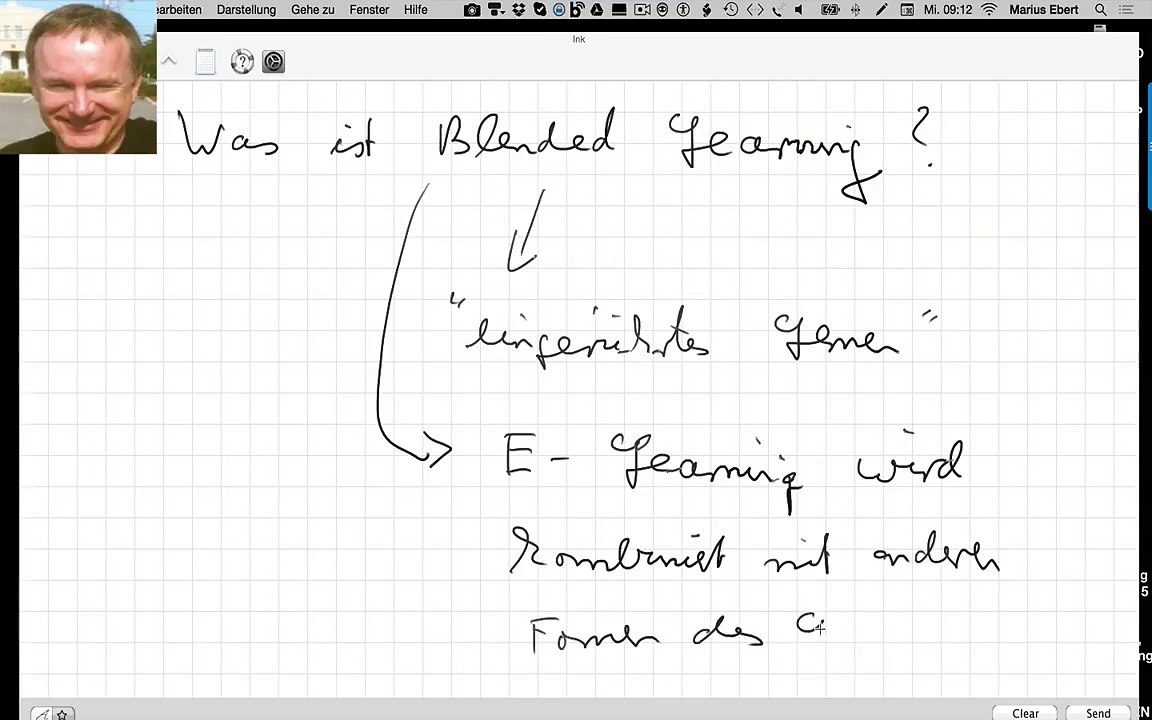 earbeiten Darstellung Gehe zu Fenster Hilfe Mi. 09:12 Marius Ebert
Ink
Was ist Blended Learning?
"eingerührtes Lernen"
E-Learning wird
kombiniert mit anderen
Formen des
Clear Send